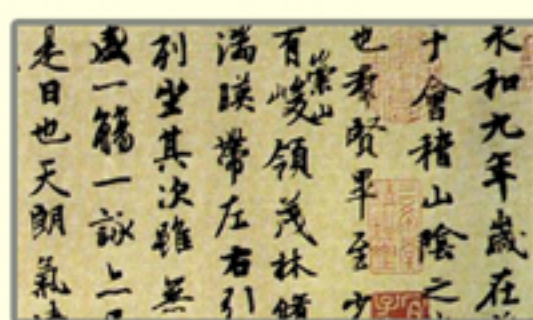 永和九年歲在
于會稽山陰之
也羣賢畢至少
有崇山峻領茂林脩
湍暎帶左右引
列坐其次雖無
盛一觴一詠亦
是日也天朗氣清